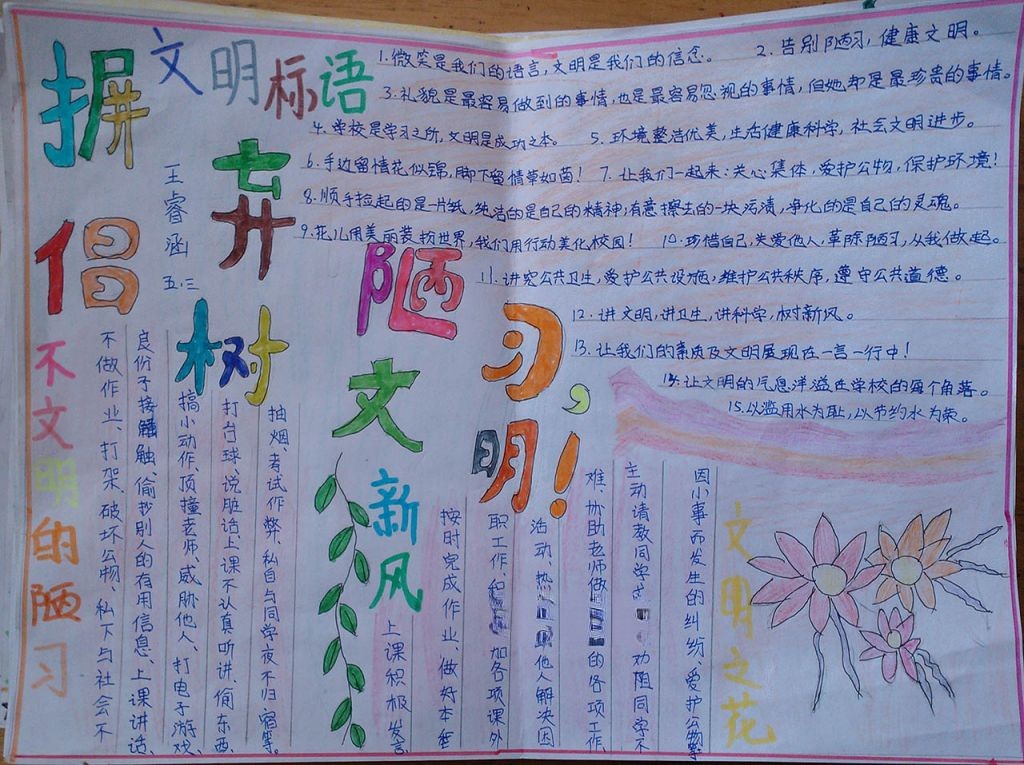 文明标语
摒弃陋习,
倡树文明!
王睿涵
五.三
1.微笑是我们的语言,文明是我们的信念。
2.告别陋习,健康文明。
3.礼貌是最容易做到的事情,也是最容易忽视的事情,但她却是最珍贵的事情。
4.学校是学习之所,文明是成功之本。
5.环境整洁优美,生活健康科学,社会文明进步。
6.手边留情花似锦,脚下留情草如茵!
7.让我们一起来:关心集体,爱护公物,保护环境!
8.顺手捡起的是一片纸,纯洁的是自己的精神;有意擦去的一块污渍,净化的是自己的灵魂。
9.花儿用美丽装扮世界,我们用行动美化校园!
10.珍惜自己,关爱他人,革除陋习,从我做起。
11.讲究公共卫生,爱护公共设施,维护公共秩序,遵守公共道德。
12.讲文明,讲卫生,讲科学,树新风。
13.让我们的素质及文明展现在一言一行中!
14.让文明的气息洋溢在学校的每个角落。
15.以滥用水为耻,以节约水为荣。
不文明的陋习
不做作业、打架、破坏公物、私下与社会不
良份子接触、偷抄别人的有用信息、上课讲话、
搞小动作、顶撞老师、威胁他人、打电子游戏、
打台球、说脏话、上课不认真听讲、偷东西、
抽烟、考试作弊、私自与同学夜不归宿等。
文明新风
上课积极发言
按时完成作业、做好本
职工作、加各项课外
活动、热他人解决困
难、协助老师做的各项工作、
主动请教同学劝阻同学不
因小事而发生的纠纷、爱护公物等
文明之花